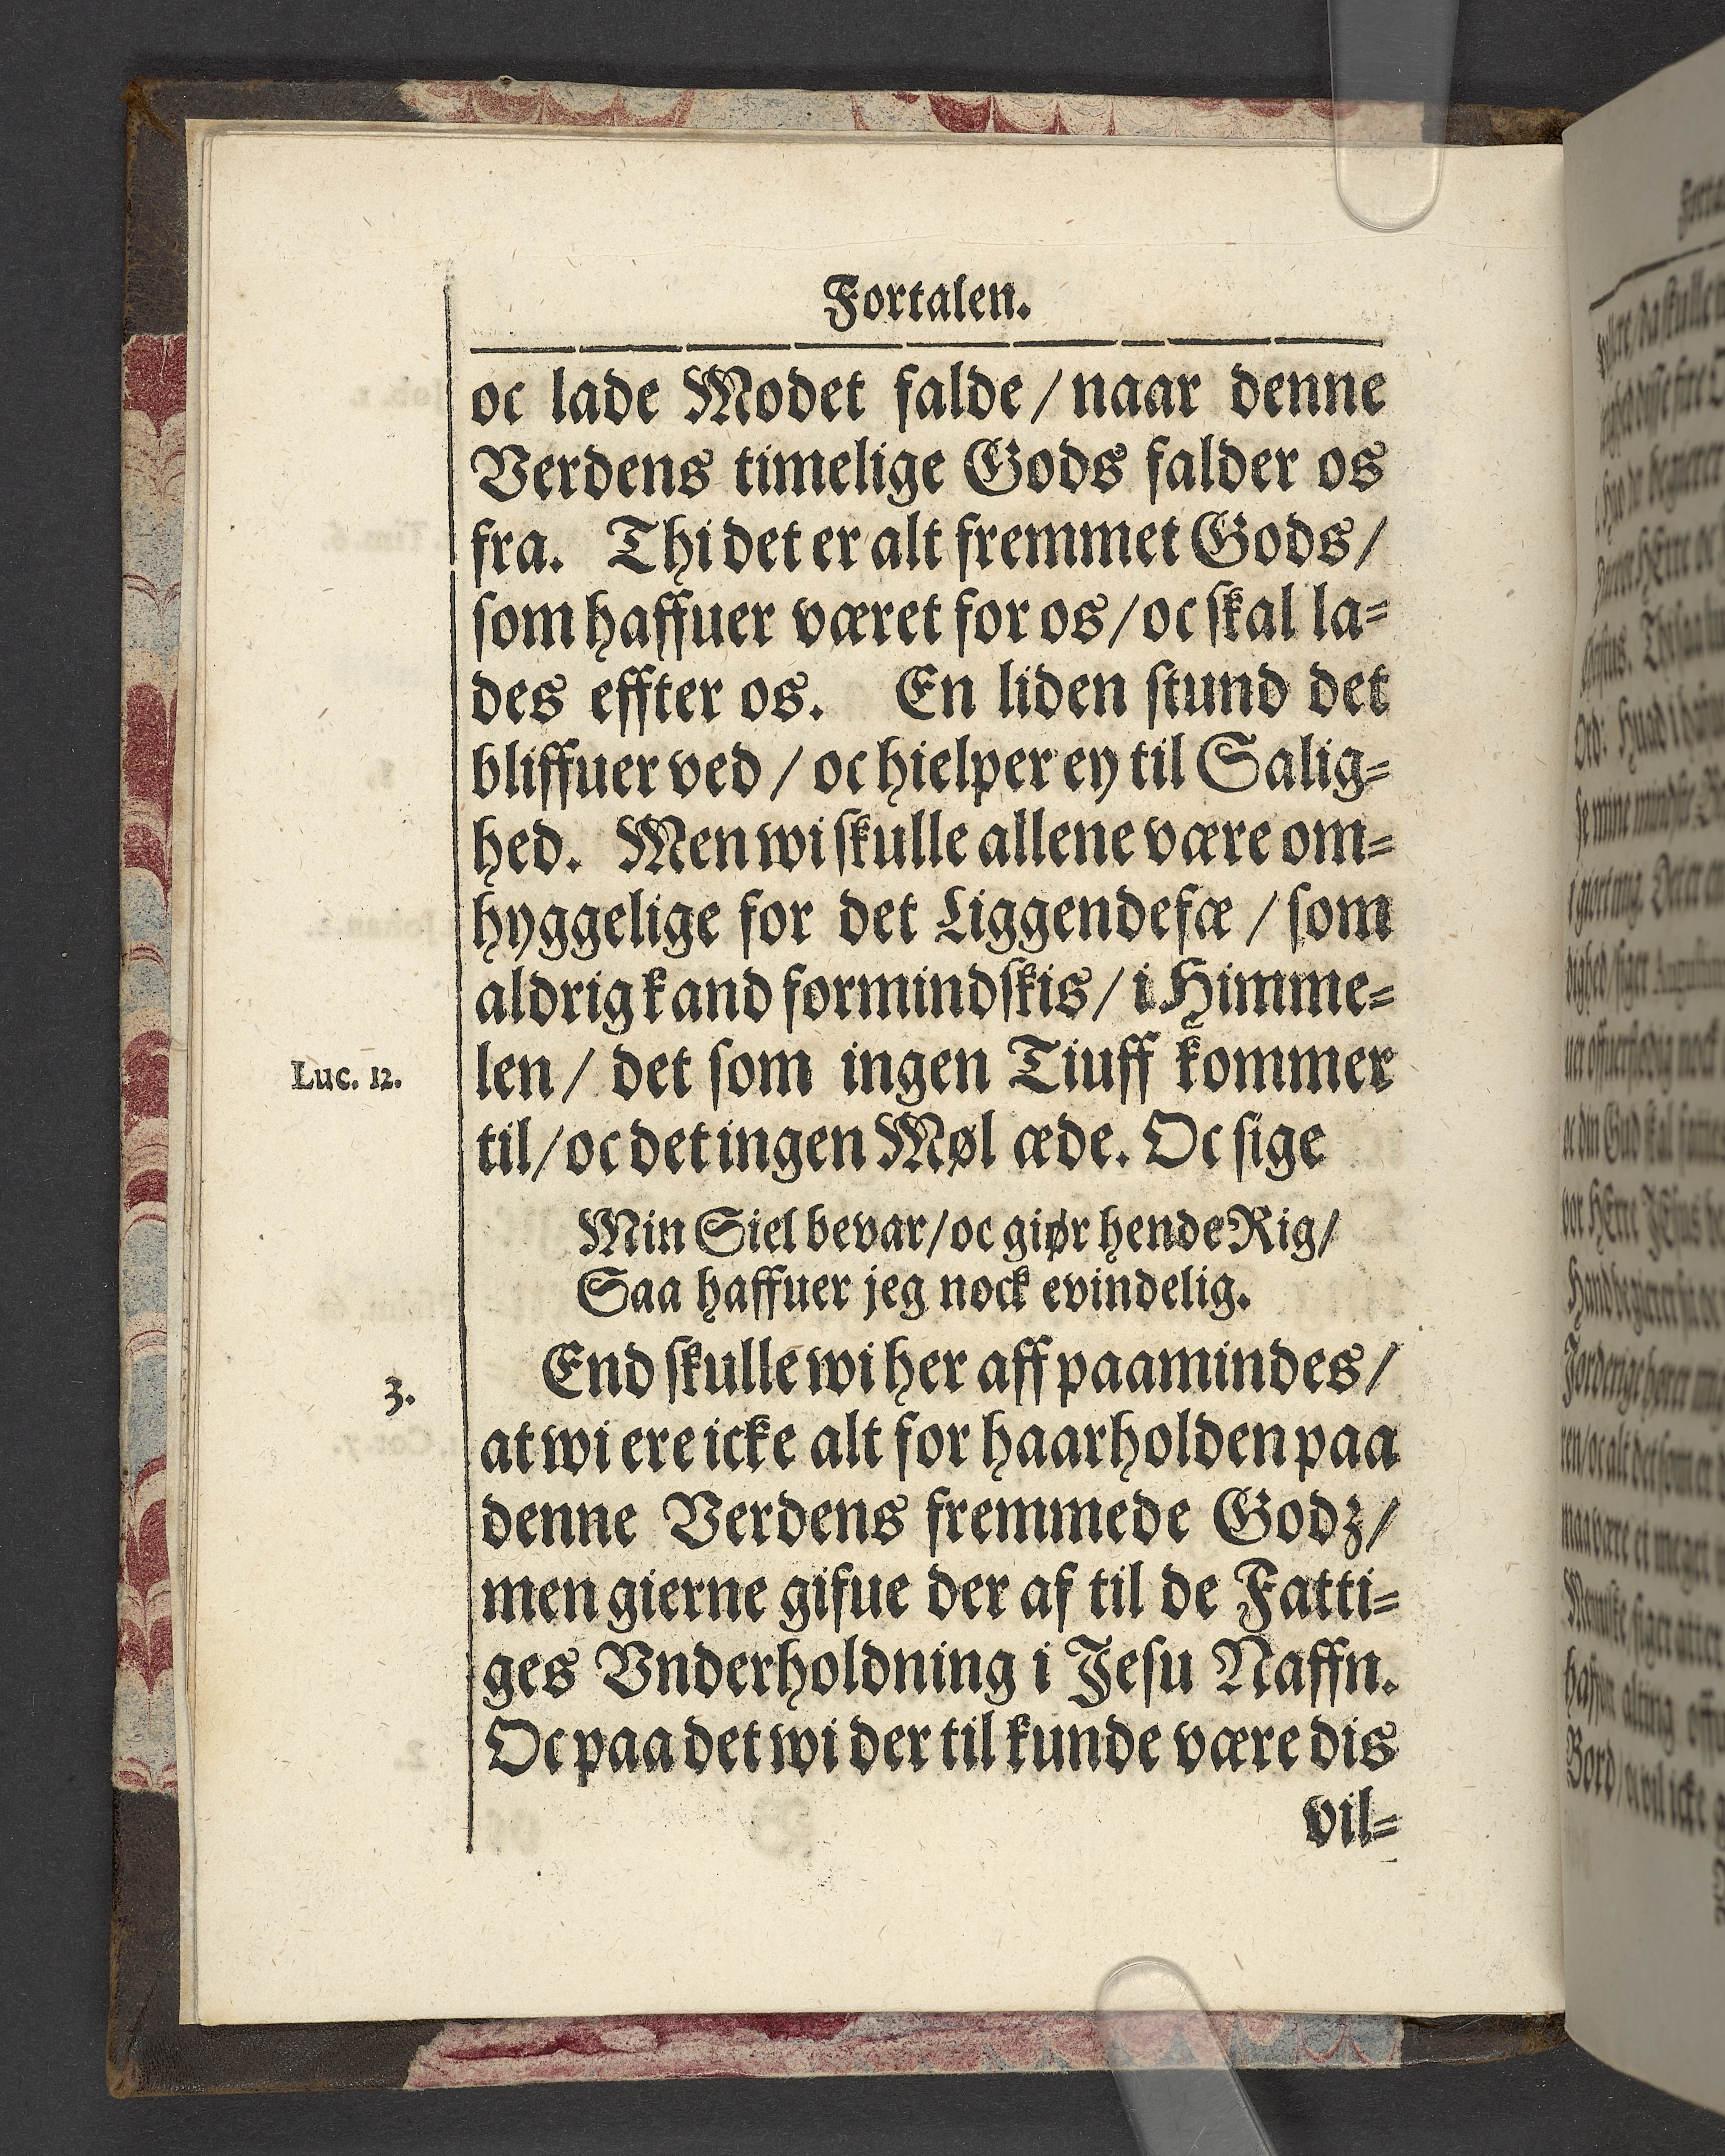 Fortalen.
oc lade Modet falde / naar denne
Verdens timelige Gods falder os
fra. Thi det er alt fremmet Gods /
som haffuer været for os / oc skal la=
des effter os. En liden stund det
bliffuer ved / oc hielper ey til Salig=
hed. Men wi skulle allene være om=
hyggelige for det Liggendefæ / som
aldrig kand formindskis / i Himme=
Luc. 12.
len / det som ingen Tiuff kommer
til / oc det ingen Møl æde. Oc sige
Min Siel bevar / oc giør hende Rig /
Saa haffuer jeg nock evindelig.
3.
End skulle wi her aff paamindes /
at wi ere icke alt for haarholden paa
denne Verdens fremmede Godz /
men gierne gifue der af til de Fatti=
ges Vnderholdning i Jesu Naffn.
Oc paa det wi der til kunde være dis
vil=